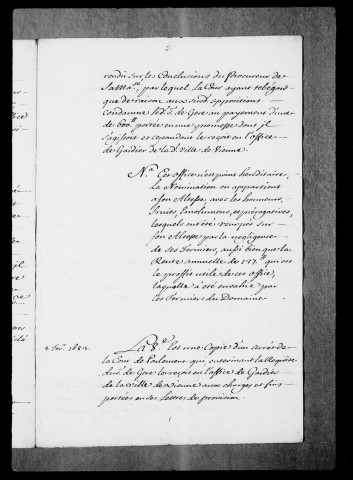 rendu sur les Conclusions du Procureur de
Sa Ma.té, par lequel la Cour ayant tel égard
que de raison aux susd. oppositions
condamne led. S.r de Gere au payement d'une
de 600.tt portée en une promesse dont il
s'agissoit et cependant le reçoit en l'office
de Gardier de la d. Ville de Vienne.
N.a Cet office n'est point hereditaire,
la Nomination en appartient
a son Altesse, avec les honneurs,
fruits, Emolumens, et prérogatives,
lesquels ont été usurpés sur
son Altesse par la négligence
de ses Fermiers, aussi bien que la
Rente annuelle de 127.tt qui est
le proffit utile de cet office,
laquelle a été envahie par
les Fermiers du Domaine
La 8.e est une Copie d'un arrêt de
la Cour de Parlement qui enterinant la Requête
du S.r de Gere le reçoit en l'office de Gardier
de la Ville de Vienne aux charges et fins
portées en ses Lettres de provision.